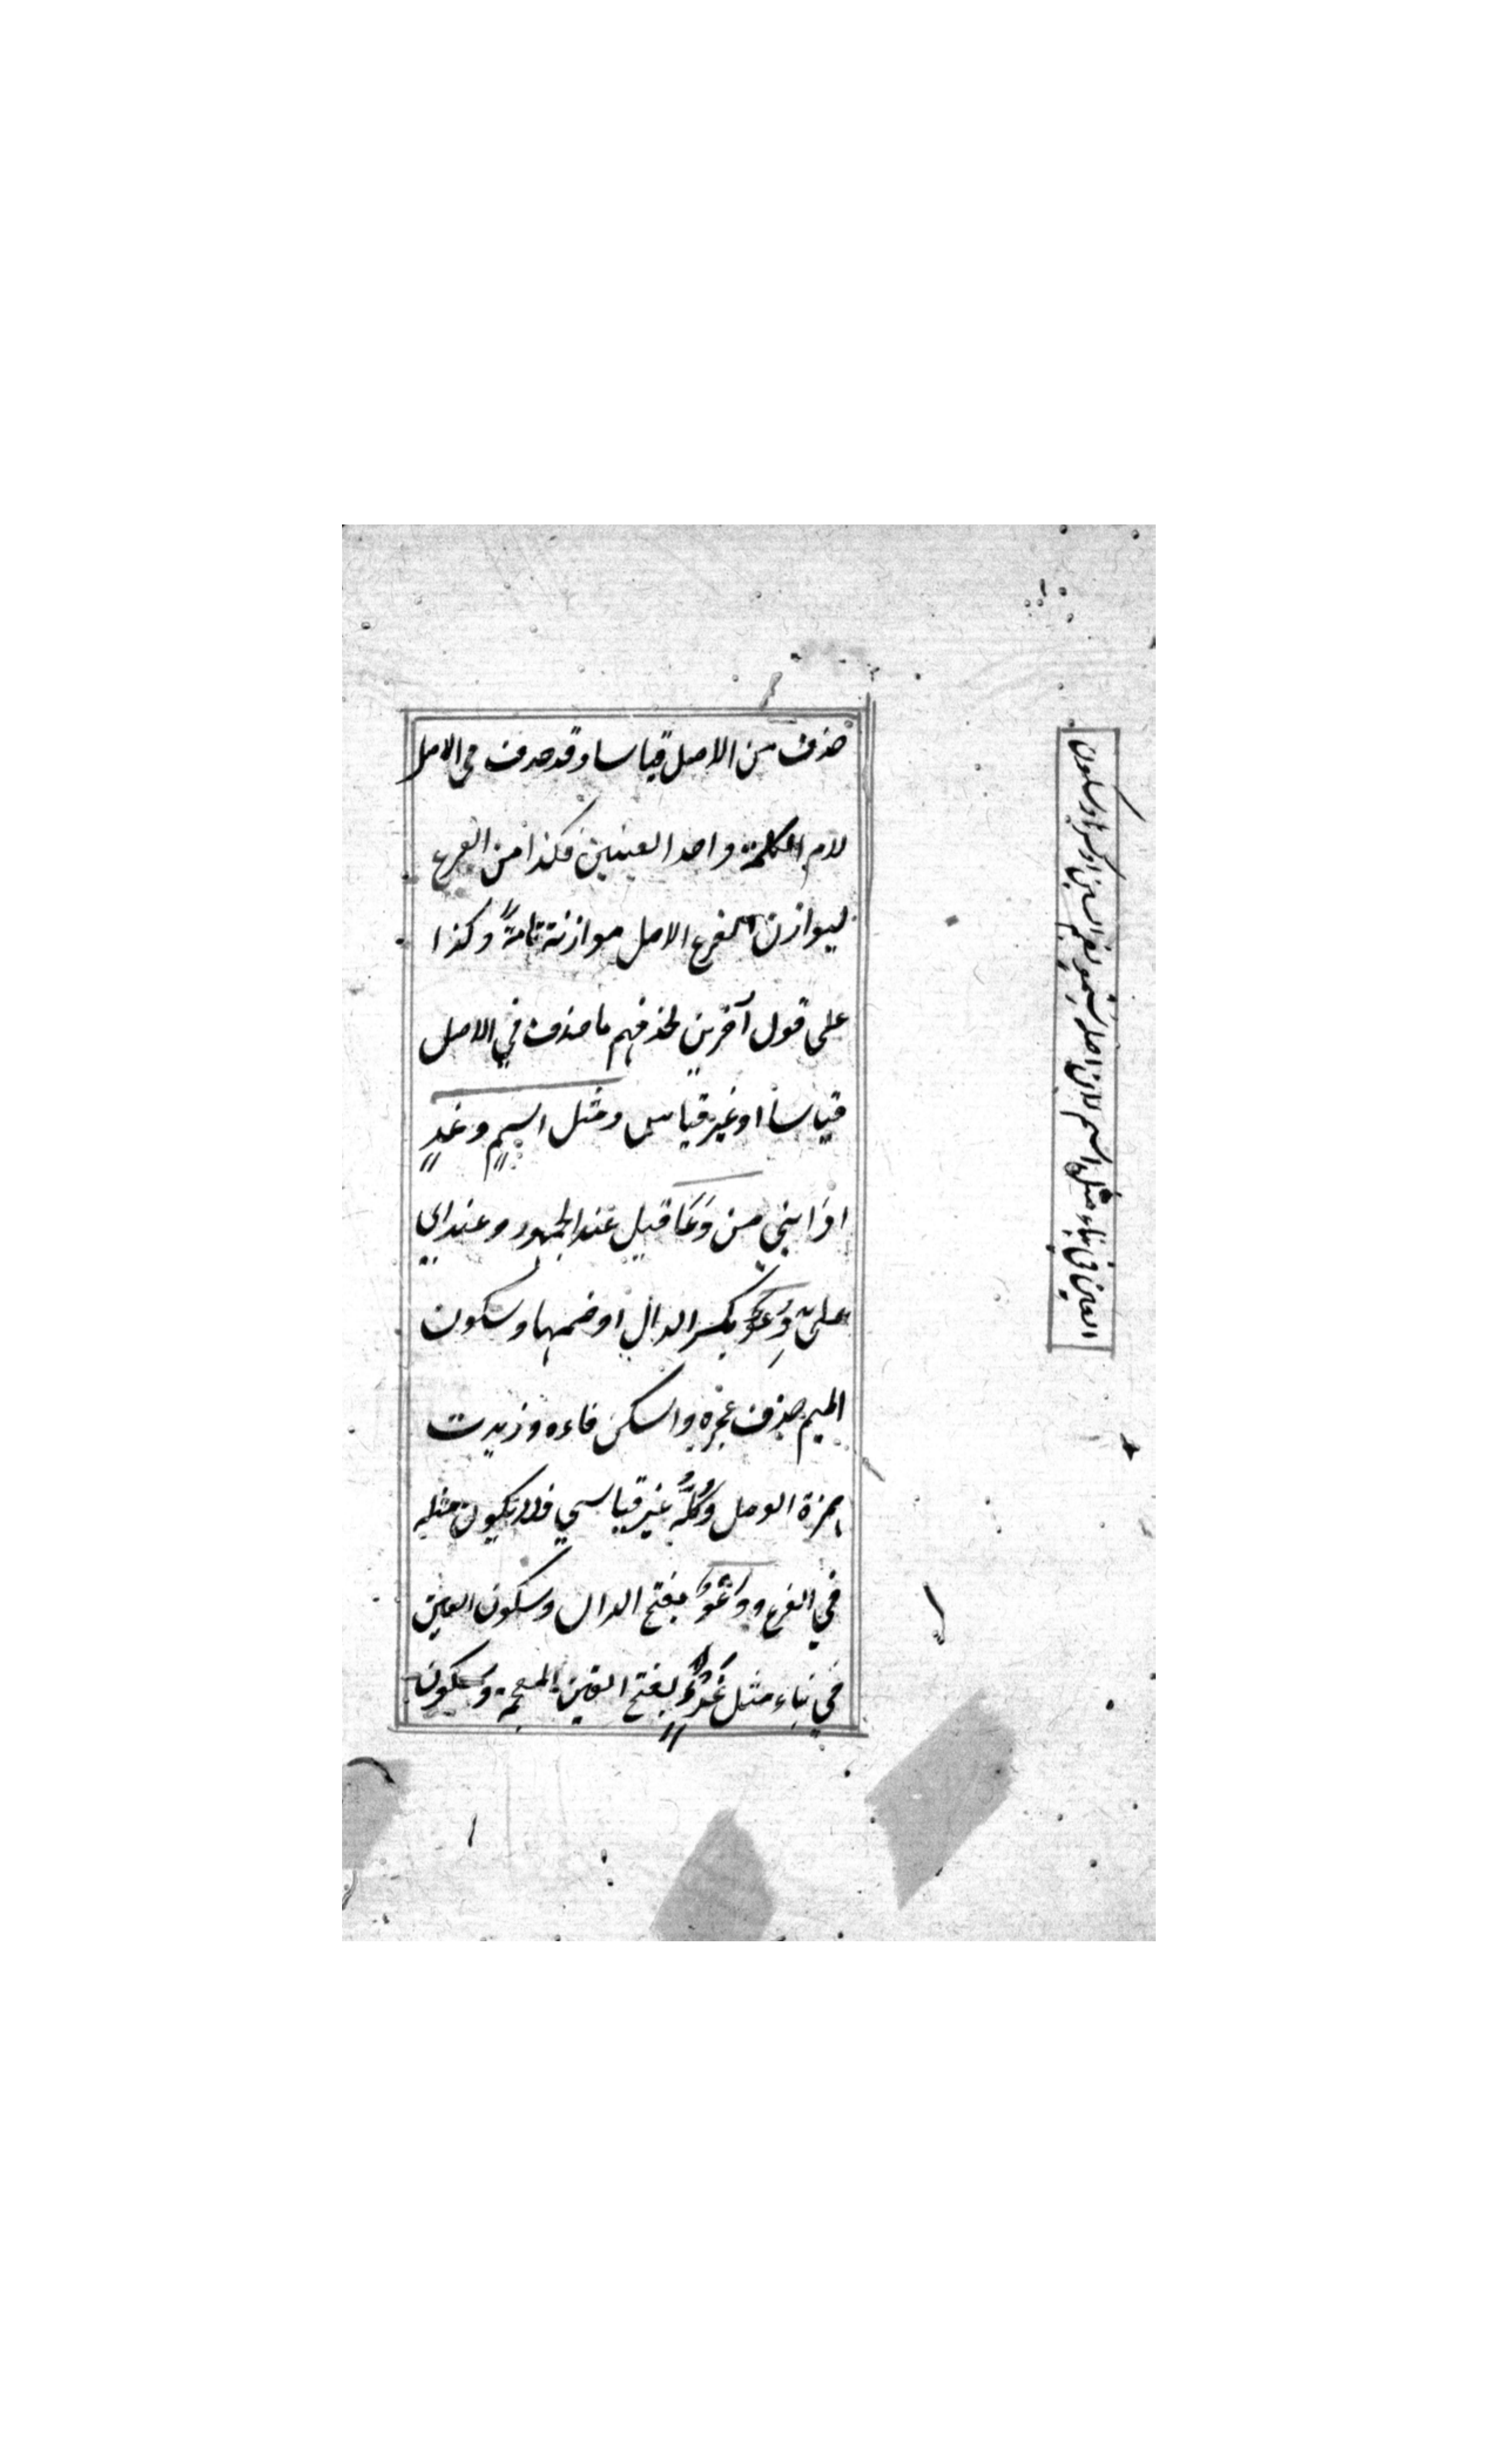 حذف من الاصل قياسا وقد حذف في الاصل
لام الكلمة واحد العينين فكذا من الفرع
ليوازن الفرع الاصل موازنة تامةً وكذا
على قول آخرين لحذفهم ما حذف في الاصل
قياسا او غير قياس ومثل اسمٍ وغدٍ
اذا بني من دَعَا قيل عند الجمهور وعند ابي
علي دِعْوٌ بكسر الدال او ضمها وسكون
الميم حذف عجزه واسكن فاءه وزيدت
همزة الوصل وكلُّه غير قياسي فلا يكون مثله
في الفرع ودَعْوٌ بفتح الدال وسكون العين
في بناء مثل غَدٍ بفتح الغين المعجمة وسكون
العين في بناء مثل اسم لان اصله سمو بضم السين او كسرها وسكون